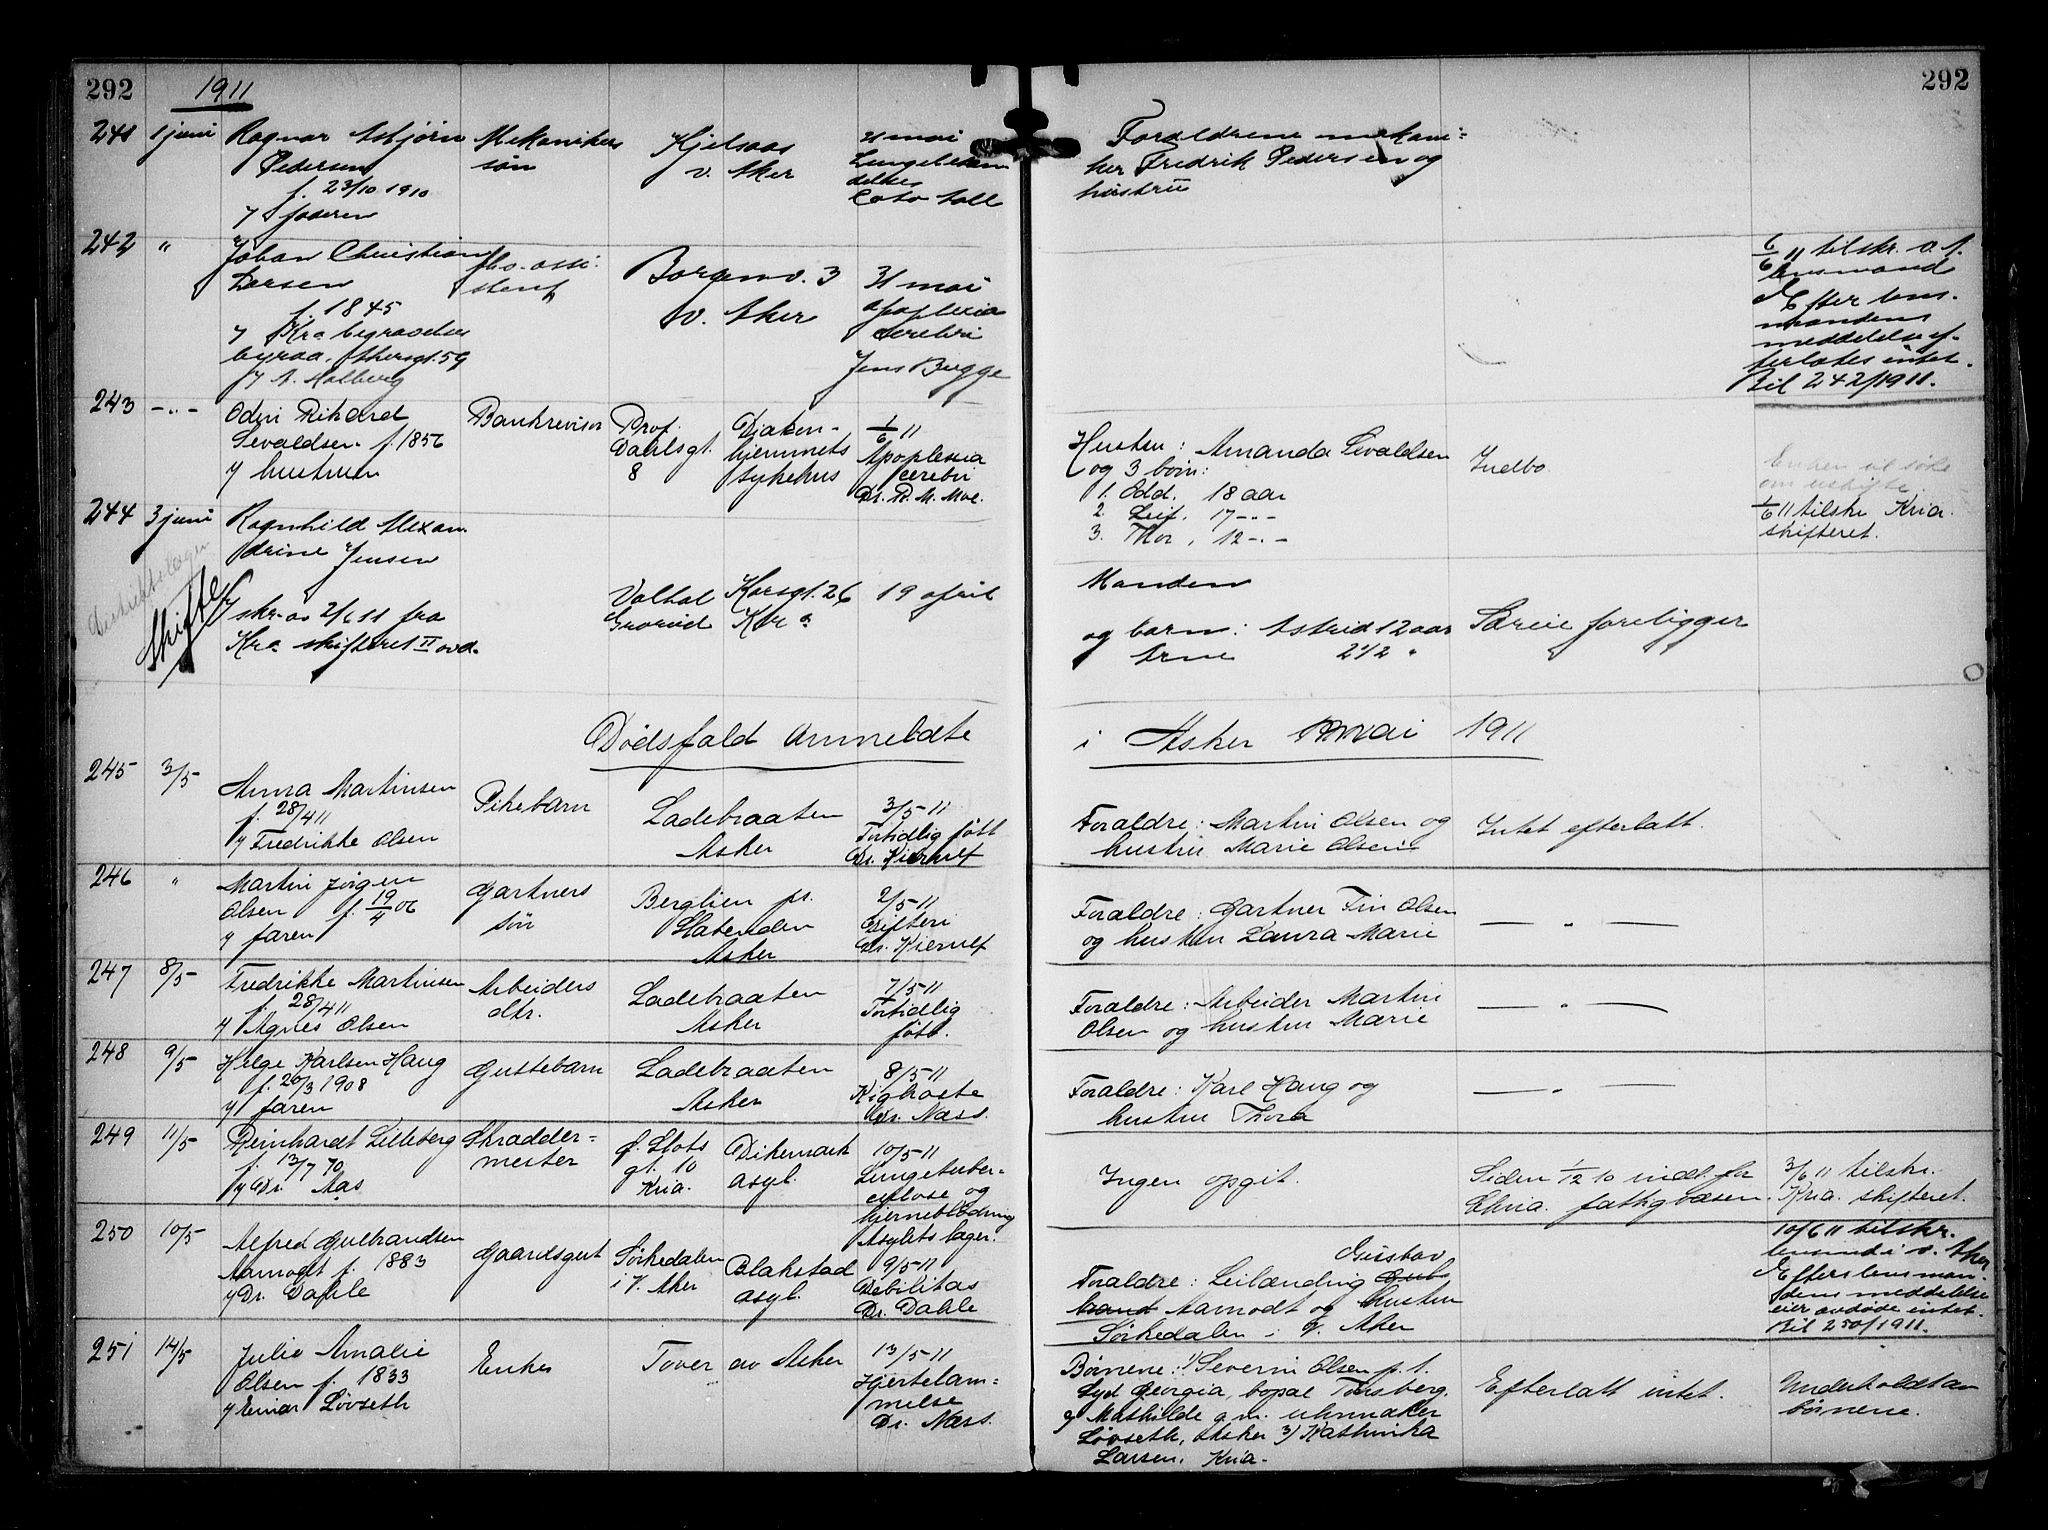 292
1911
292
241
1 juni
Ragnar Asbjørn
Pedersen
f. 23/10 1910
v/ faderen
Mekanikers
søn
Kjelsaas
v. Aker
31 mai
Foraldrene mekani-
ker Fredrik Pedersen og
hustru
242
"
Johan Christian
Larsen
f. 1845
v/ Kra begravelses
byraa. Akersgt. 59
v/ A. Malberg
fhv. assi-
stent
Borgenv. 3
v. Aker
31 mai
apoplexia
cerebri
Jens Bugge
6/6 11 tilskr. v. A.
lensmand
Efter lens-
mandens
meddelelse ef-
terlates intet.
Bil 242/1911.
243
-"-
Odin Rikard
Sevaldsen f. 1856
v/ hustruen
Bankrevisor
Prof.
Dahlsgt.
8
Diakon-
hjemmets
sykehus
1/6 11
Apoplexia
cerebri
Dr. R. M. Moe.
Hustru: Amanda Sevaldsen
og 3 barn:
1. Odd, 18 aar
2. Leif, 17 -"-
3. Thor, 12 -"-
Indbo
Enken vil søke
om uskifte
1/6 11 tilskr Kria.
skifteret.
244
3 juni
Ragnhild Alexan-
drine Jensen
v/ skr. av 2/6 11 fra
Kra skifteret II avd.
Skifte
Valhal
Grorud
Korsgt. 26
Kra
19 april
Manden
og barn: Astrid 12 aar
Arne 2 1/2 "
Særeie foreligger
Dødsfald anmeldte
i Asker mai 1911
245
3/5
Anna Martinsen
f. 28/4 11
v/ Fredrikke Olsen
Pikebarn
Ladebraaten
Asker
3/5-11
Fortidlig født
Dr. Kierulf
Foraldre: Martin Olsen og
hustru Marie Olsen
Intet efterlatt.
246
"
Martin Jørgen
Olsen f. 19/4 06
v/ faren
Gartners
søn
Berglien pr.
Slabenden
Asker
2/5-11
Difteri
Dr. Kierulf
Foraldre: Gartner Fin Olsen
og hustru Laura Marie
— " —
247
8/5
Fredrikke Martinsen
f. 28/4 11
v/ Agnes Olsen
Arbeiders
dtr.
Ladebraaten
Asker
7/5-11
Fortidlig
født.
Foraldre: Arbeider Martin
Olsen og hustru Marie
— " —
248
9/5
Helge Karlsen Haug
f. 20/3 1908
v/ faren
Guttebarn
Ladebraaten
Asker
8/5-11
Kighoste
Dr. Næss.
Foraldre: Karl Haug og
hustru Thora
— " —
249
11/5
Reinhardt Lilleberg
f. 13/7 70
v/ Dr. Aas
Skrædder-
mester
f. Slots
gt. 10
Kria.
Dikemark
asyl.
10/5-11
Lungetuber-
culose og
hjerneblødning
Asylets læger.
Ingen opgit.
Siden 1/12 10 indl. for
Chria. fattigvæsen.
3/6 11 tilskr.
Kria. skifteret.
250
10/5
Alfred Gulbrandsen
Aamodt f. 1883
v/ Dr. Dahle
Gaardsgut
Sørkedalen
i V. Aker
Blakstad
asyl.
9/5-11
Debilitas
Dr. Dahle
Gustav
Foraldre: Leilænding Gul-
brand Aamodt og hustru
Sørkedalen i V. Aker
10/6 11 tilskr.
lensmd i v. Aker
Efter lensman-
dens meddelelse
eier avdøde intet.
Bil 250/1911.
251
14/5
Julie Amalie
Olsen f. 1833
v/ Einar Løvseth
Enke
Tover av Asker
13/5-11
Hjertelam-
melse
Dr. Næss.
Børnene: 1) Severin Olsen p.t.
Syd Georgia, bopæl Tønsberg.
2) Mathilde g.m. urhmaker
Løvseth, Asker 3) Kathinka
Larsen, Kria.
Efterlatt intet.
Underholdt av
børnene.